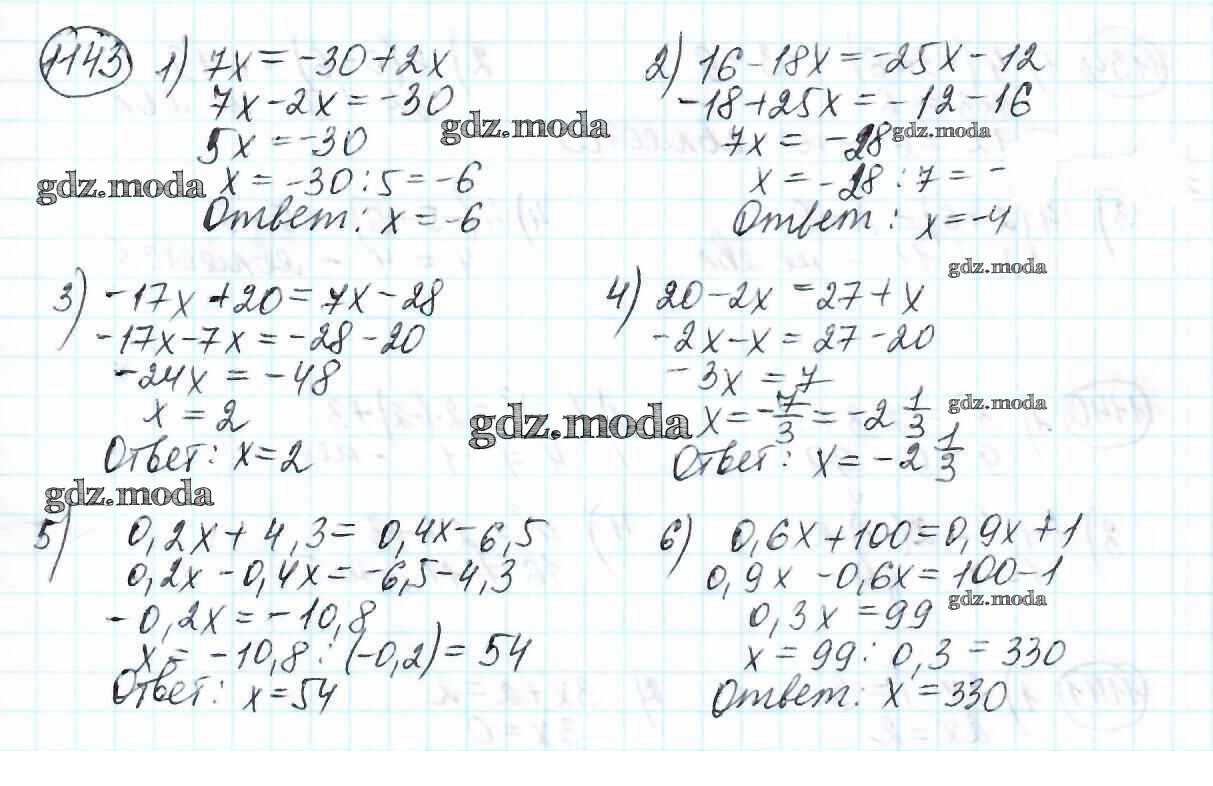 1143
1) 7x = -30 + 2x
7x - 2x = -30
5x = -30
x = -30 : 5 = -6
Ответ: x = -6
2) 16 - 18x = -25x - 12
-18 + 25x = -12 - 16
7x = -28
x = -28 : 7 = -
Ответ: x = -4
3) -17x + 20 = 7x - 28
-17x - 7x = -28 - 20
-24x = -48
x = 2
Ответ: x = 2
4) 20 - 2x = 27 + x
-2x - x = 27 - 20
-3x = 7
x = -7/3 = -2 1/3
Ответ: x = -2 1/3
5) 0,2x + 4,3 = 0,4x - 6,5
0,2x - 0,4x = -6,5 - 4,3
-0,2x = -10,8
x = -10,8 : (-0,2) = 54
Ответ: x = 54
6) 0,6x + 100 = 0,9x + 1
0,9x - 0,6x = 100 - 1
0,3x = 99
x = 99 : 0,3 = 330
Ответ: x = 330
gdz.moda
gdz.moda
gdz.moda
gdz.moda
gdz.moda
gdz.moda
gdz.moda
gdz.moda